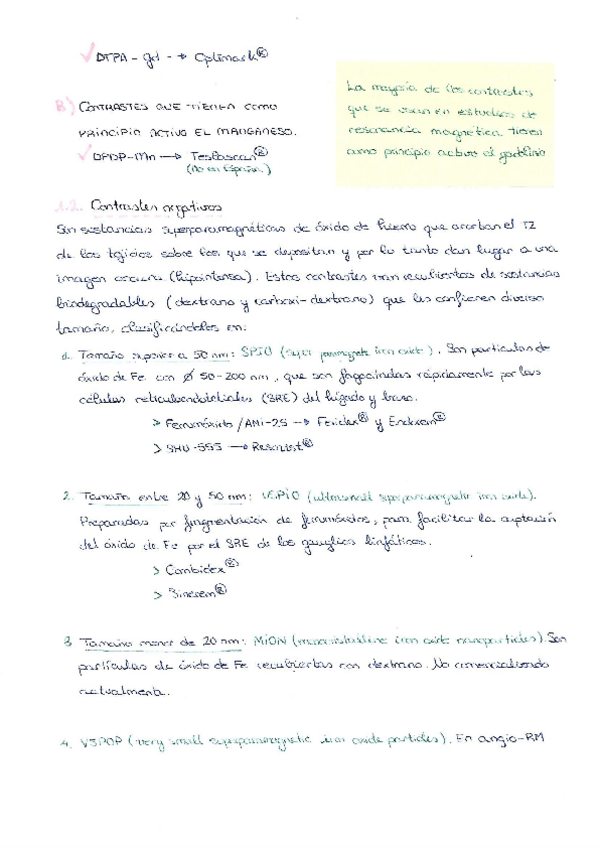 ✓ DTPA - gd - → Optimark®
La mayoría de los contrastes
que se usan en estudios de
resonancia magnética tienen
como principio activo el gadolinio
B) CONTRASTES QUE TIENEN COMO
PRINCIPIO ACTIVO EL MANGANESO.
✓ DPDP-Mn → Teslascan®
(No en España)
1.2. Contrastes negativos
Son sustancias superparamagnéticas de óxido de hierro que acortan el T2
de los tejidos sobre los que se depositan y por lo tanto dan lugar a una
imagen oscura (hipointensa). Estos contrastes van recubiertos de sustancias
biodegradables (dextrano y carboxi-dextrano) que les confieren diverso
tamaño, clasificándolos en:
1. Tamaño superior a 50 nm: SPIO (super paramagnetic iron oxide). Son partículas de
óxido de Fe con Ø 50-200 nm, que son fagocitadas rápidamente por las
células reticuloendoteliales (SRE) del hígado y bazo.
> Ferrumóxido/AMI-25 → Feridex® y Endorem®
> SHU-555 → Resovist®
2. Tamaño entre 20 y 50 nm: USPIO (ultrasmall superparamagnetic iron oxide).
Preparadas por fragmentación de ferumóxidos, para facilitar la captación
del óxido de Fe por el SRE de los ganglios linfáticos.
> Combidex®
> Sinerem®
3 Tamaño menor de 20 nm: MION (monocristalline iron oxide nanoparticles). Son
partículas de óxido de Fe recubiertas con dextrano. No comercializado
actualmente.
4. VSPOP (very small superparamagnetic iron oxide particles). En angio-RM